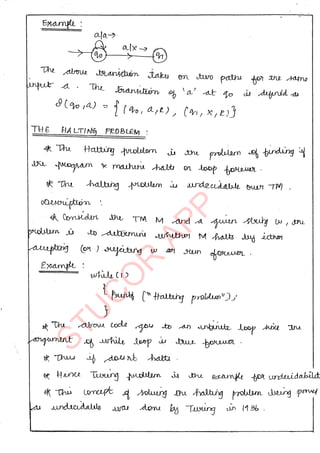 Example :
a/a→
a/x→
q0 q1
The above transition takes on two paths for the same
input a. The transition of 'a' at q0 is defined as
δ(q0,a) = { (q0, a, R), (q1, x, R)}
THE HALTING PROBLEM :
* The Halting problem is the problem of finding if
the program x machine halts or loop forever.
* The halting problem is undecidable over TM.
Description :
* Consider the TM M and a given string w, the
problem is to determine whether M halts by either
accepting (or) rejecting w or run forever.
Example :
while (1)
{
printf ("Halting problem");
}
* The above code goes to an infinite loop since the
argument of while loop is true forever.
* Thus it doesn't halts.
* Hence Turing problem is the example for undecidabilit
* This concept of solving the halting problem being prove
as undecidable was done by Turing in 1936.
STUCOR APP